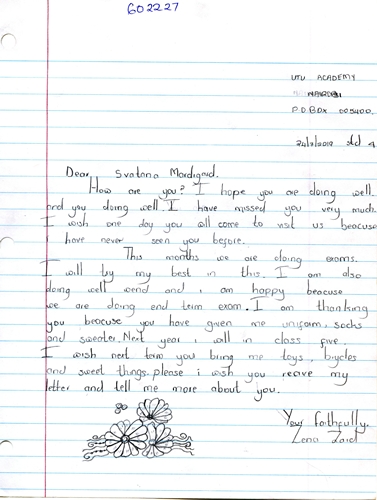 602227
UTU ACADEMY
NAIROBI
P.O.BOX 005400.
24/7/2019 std 4
Dear, Svatana Mordigaid.
How are you? I hope you are doing well.
and you doing well. I have missed you very much.
I wish one day you will come to visit us beacuse
I have never seen you before.
This months we are doing exams.
I will try my best in this. I am also
doing well wend and i am happy beacuse
we are doing end term exam. I am thanking
you beacuse you have given me uniform, socks
and sweater. Next year i will in class five.
I wish next term you bring me toys, bicycles
and sweet things. please i wish you recive my
letter and tell me more about you.
Your faithfully,
Zena Zaid